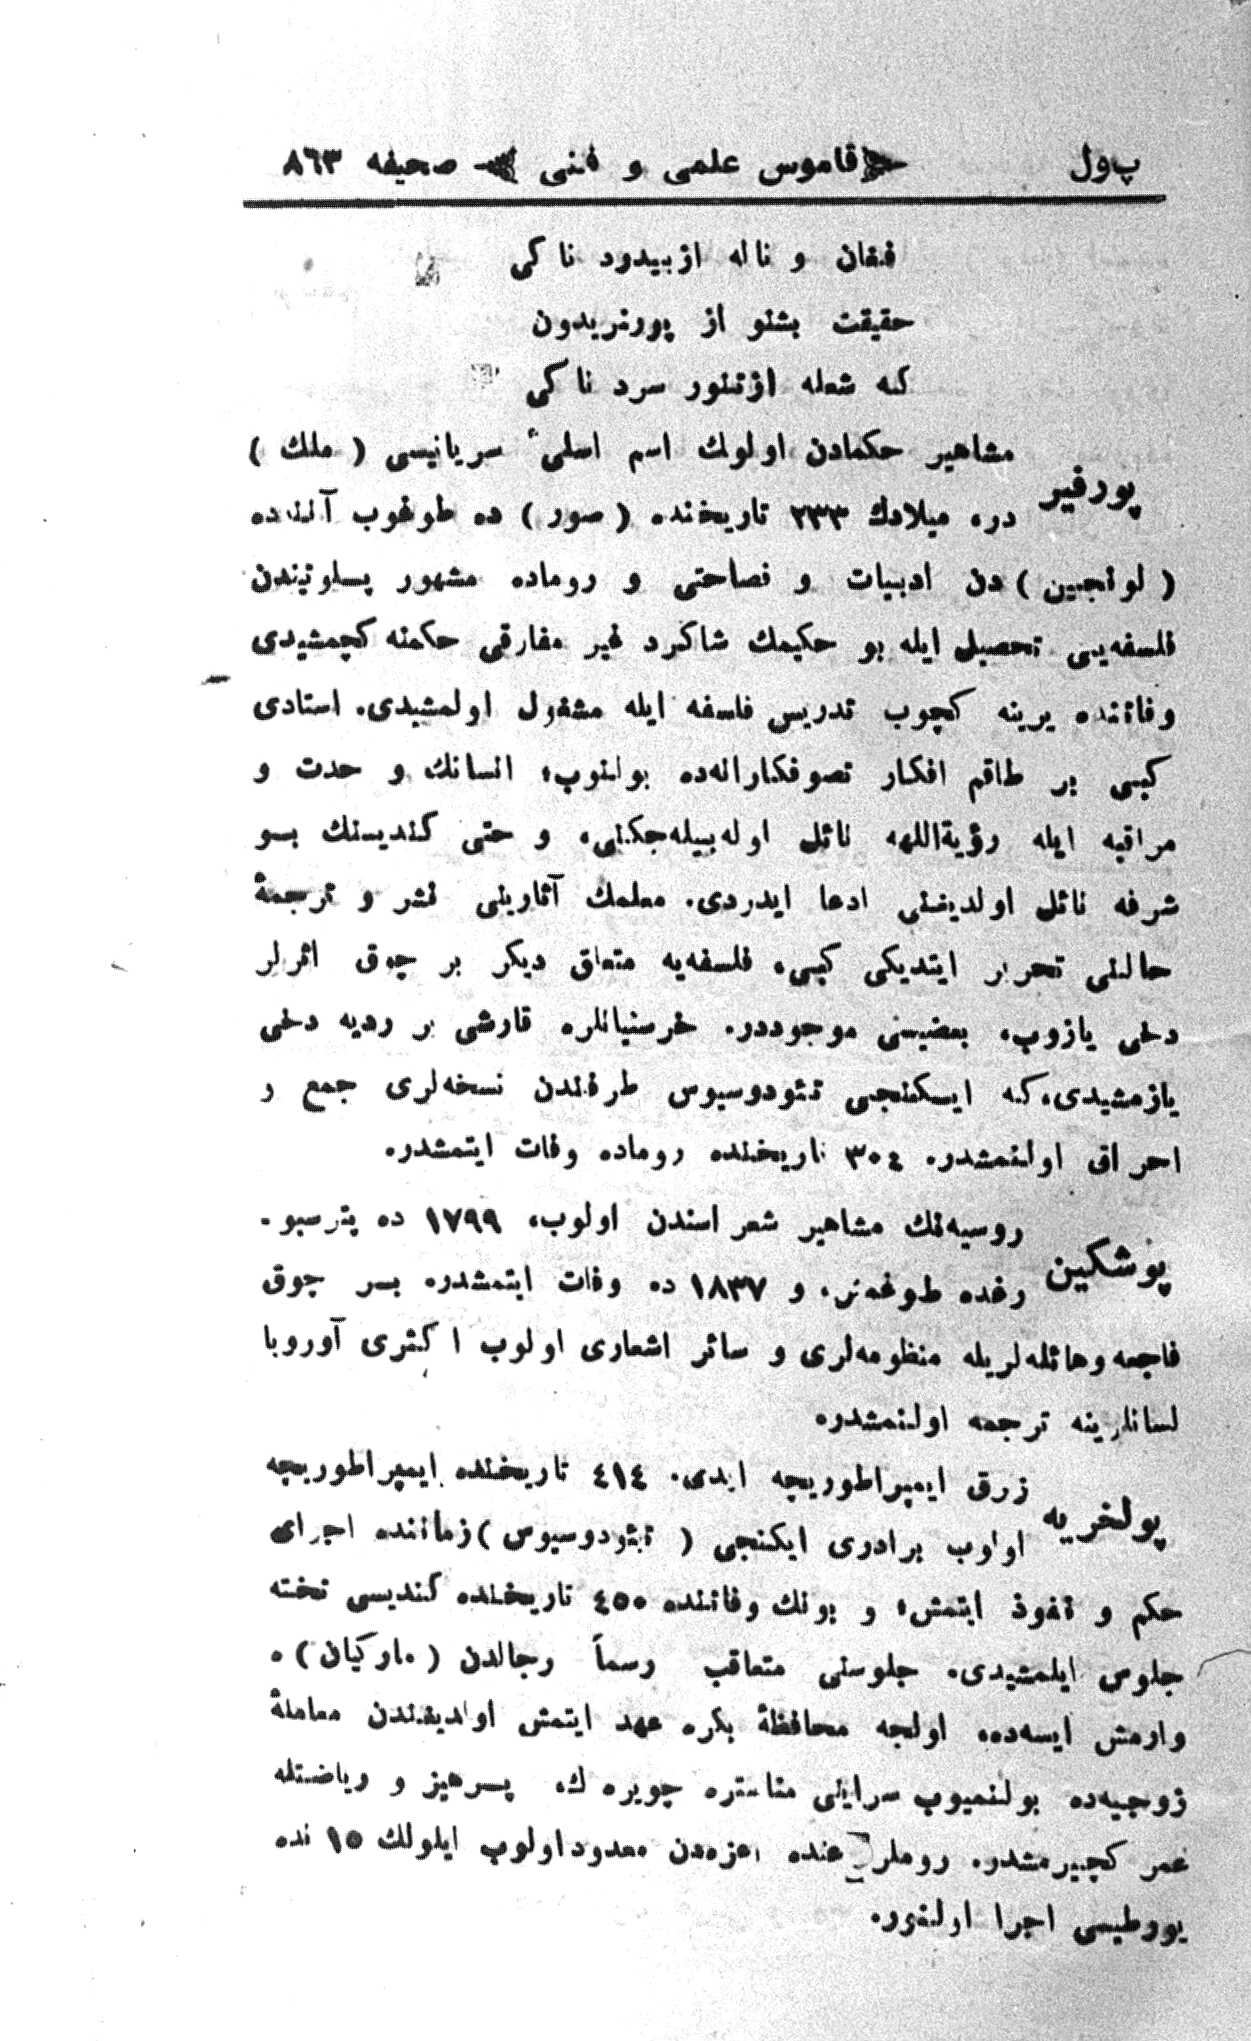 پ‌ول قاموس علمی و فنی صحیفه ٨٦٣
فغان و ناله از بیدود ناکی
حقیقت بشنو از پورفریدون
که شعله از تنور سرد ناکی
پورفیر مشاهیر حکمادن اولوك اسم اسلیٔ سریانیسی ( ملك )
در، میلادك ٢٣٣ تاریخنده ( صور ) ده طوغوب آتنه‌ده
( لونجین ) دن ادبیات و فصاحتی و روماده مشهور پسلوتیندن
فلسفه‌یی تحصیل ایله بو حکیمك شاکرد غیر مفارقی حکمنه کچمشیدی
وفاتنده یرینه کچوب تدریس فلسفه ایله مشغول اولمشیدی. استادی
کبی بر طاقم افکار تصوفکارانه‌ده بولنوب، انسانك و حدت و
مراقبه ایله رؤیة‌اللهه نائل اوله‌بیله‌جکنی، و حتی کندیسنك بسو
شرفه نائل اولدیغنی ادعا ایدردی. معلمك آثارینی نشر و ترجمهٔ
حالنی تحریر ایتدیکی کبی، فلسفه‌یه متعلق دیکر بر چوق اثرلر
دخی یازوب، بعضیسی موجوددر. خرستیانلره قارشی بر ردیه دخی
یازمشیدی، که ایسکنجی تئودوسیوس طرفندن نسخه‌لری جمع و
احراق اولنمشدر. ٣٠٤ تاریخنده روماده وفات ایتمشدر.
پوشکین روسیه‌نك مشاهیر شعراسندن اولوب، ١٧٩٩ ده پترسبو-
رغده طوغمش، و ١٨٣٧ ده وفات ایتمشدر. بسر چوق
فاجعه وهائله‌لریله منظومه‌لری و سائر اشعاری اولوب اکثری آوروپا
لسانلرینه ترجمه اولنمشدر.
پولخریه زرق ایمپراطوریچه ایدی. ٤١٤ تاریخنده ایمپراطوریچه
اولوب برادری ایکنجی ( تئودوسیوس ) زماننده اجرای
حکم و نفوذ ایتمش، و بونك وفاتنده ٤٥٠ تاریخنده کندیسی تخته
جلوس ایلمشیدی. جلوسنی متعاقب رسماً رجالدن ( مارکیان ) ه
وارمش ایسه‌ده، اولجه محافظهٔ بکره عهد ایتمش اولدیغندن معاملهٔ
زوجیه‌ده بولنمیوب سرایی مناستره چویره‌رك، پسرهیز و ریاضتله
عمر کچیرمشدر. روملر عنده اعزه‌دن معدود اولوب ایلولك ١٥ نده
یورطیسی اجرا اولنور.